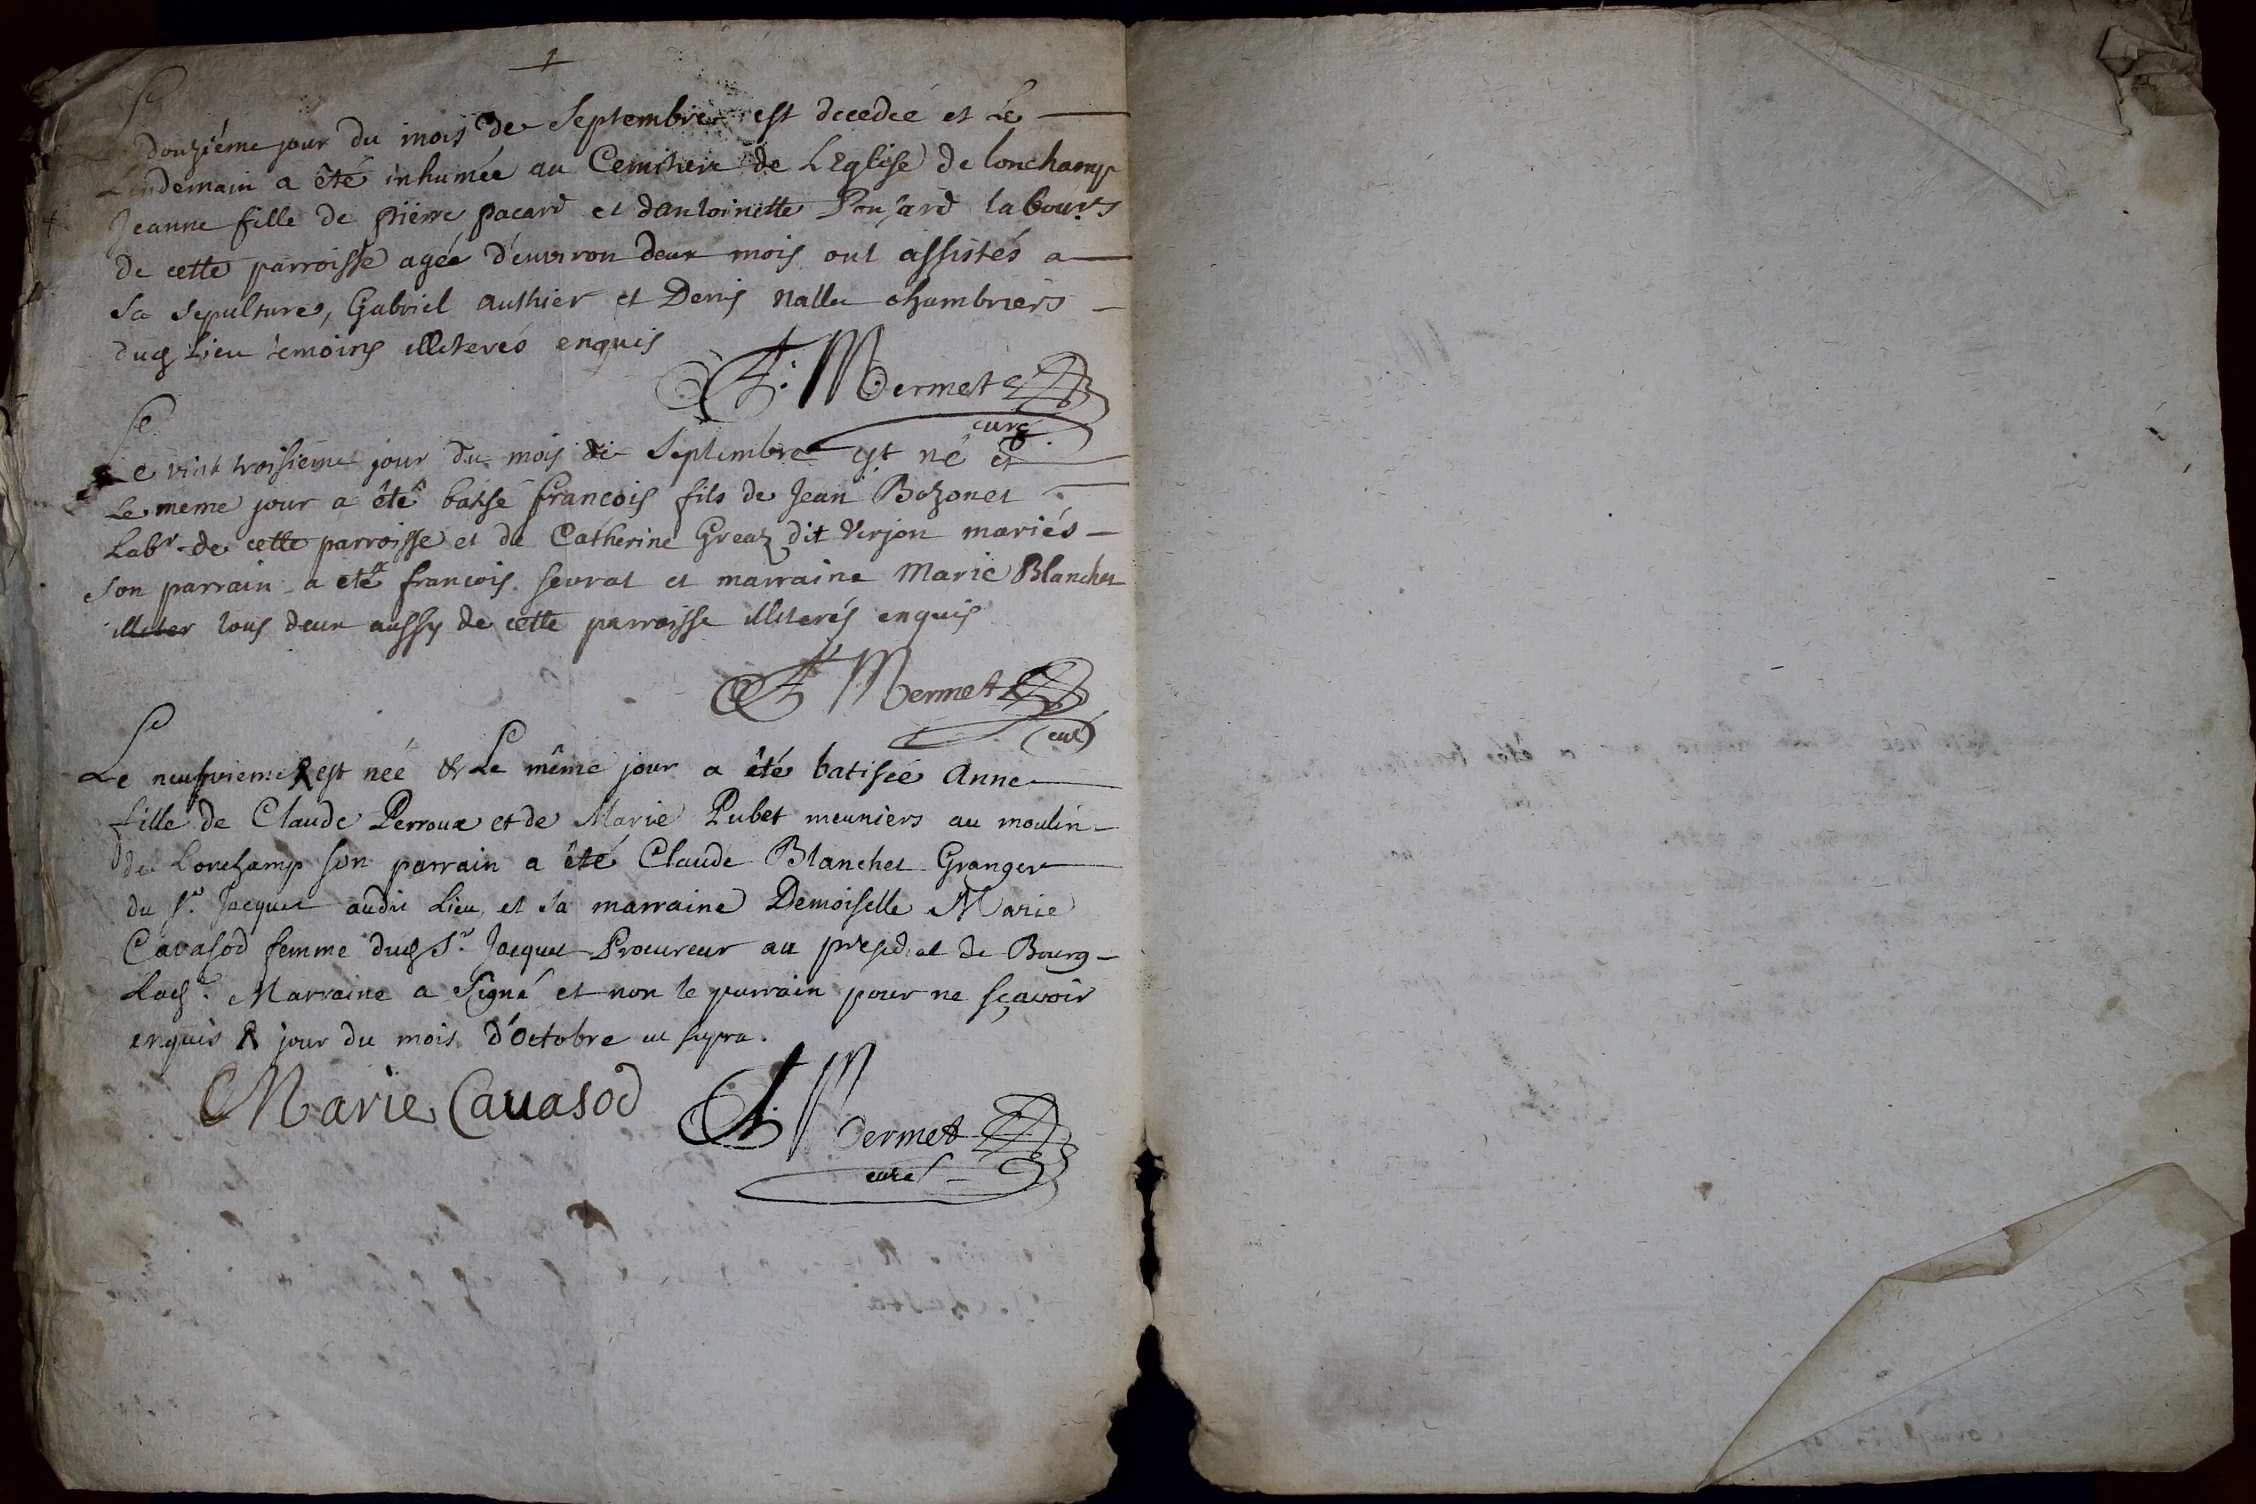 Le douziéme jour du mois de Septembre est decedée et Le
Lendemain a été inhumée au Cemitiere de L'Eglise de lonchamp
Jeanne fille de pierre pacard et d'antoinette Ponsard labour.rs
de cette parroisse agée d'environ deux mois ont assistés a
Sa sepulture, Gabriel authier et Denis nallu chambriers
dud lieu temoins illiterés enquis
F: Mermet
curé
Le vint troisieme jour du mois de Septembre est né et
Le meme jour a été batisé francois fils de Jean Bozonet
Labr de cette parroisse et de Catherine Greaz dit Verjon mariés
son parrain a eté francois sevrat et marraine Marie Blanchet
illiter tous deux aussy de cette parroisse illiterés enquis
F Mermet
curé
Le neufvieme est née & Le même jour a été batisée Anne
fille de Claude Perroux et de Marie Pubet meuniers au moulin
de Lonchamp son parrain a été Claude Blanchet Granger
du Sr. Jacquet audit Lieu, et sa marraine Demoiselle Marie
Cavasod femme dud Sr. Jacquet Procureur au presidial de Bourg
Lad.e Marraine a signé et non le parrain pour ne sçavoir
enquis jour du mois d'Octobre ut supra.
Marie Cavasod
F. Mermet
curé